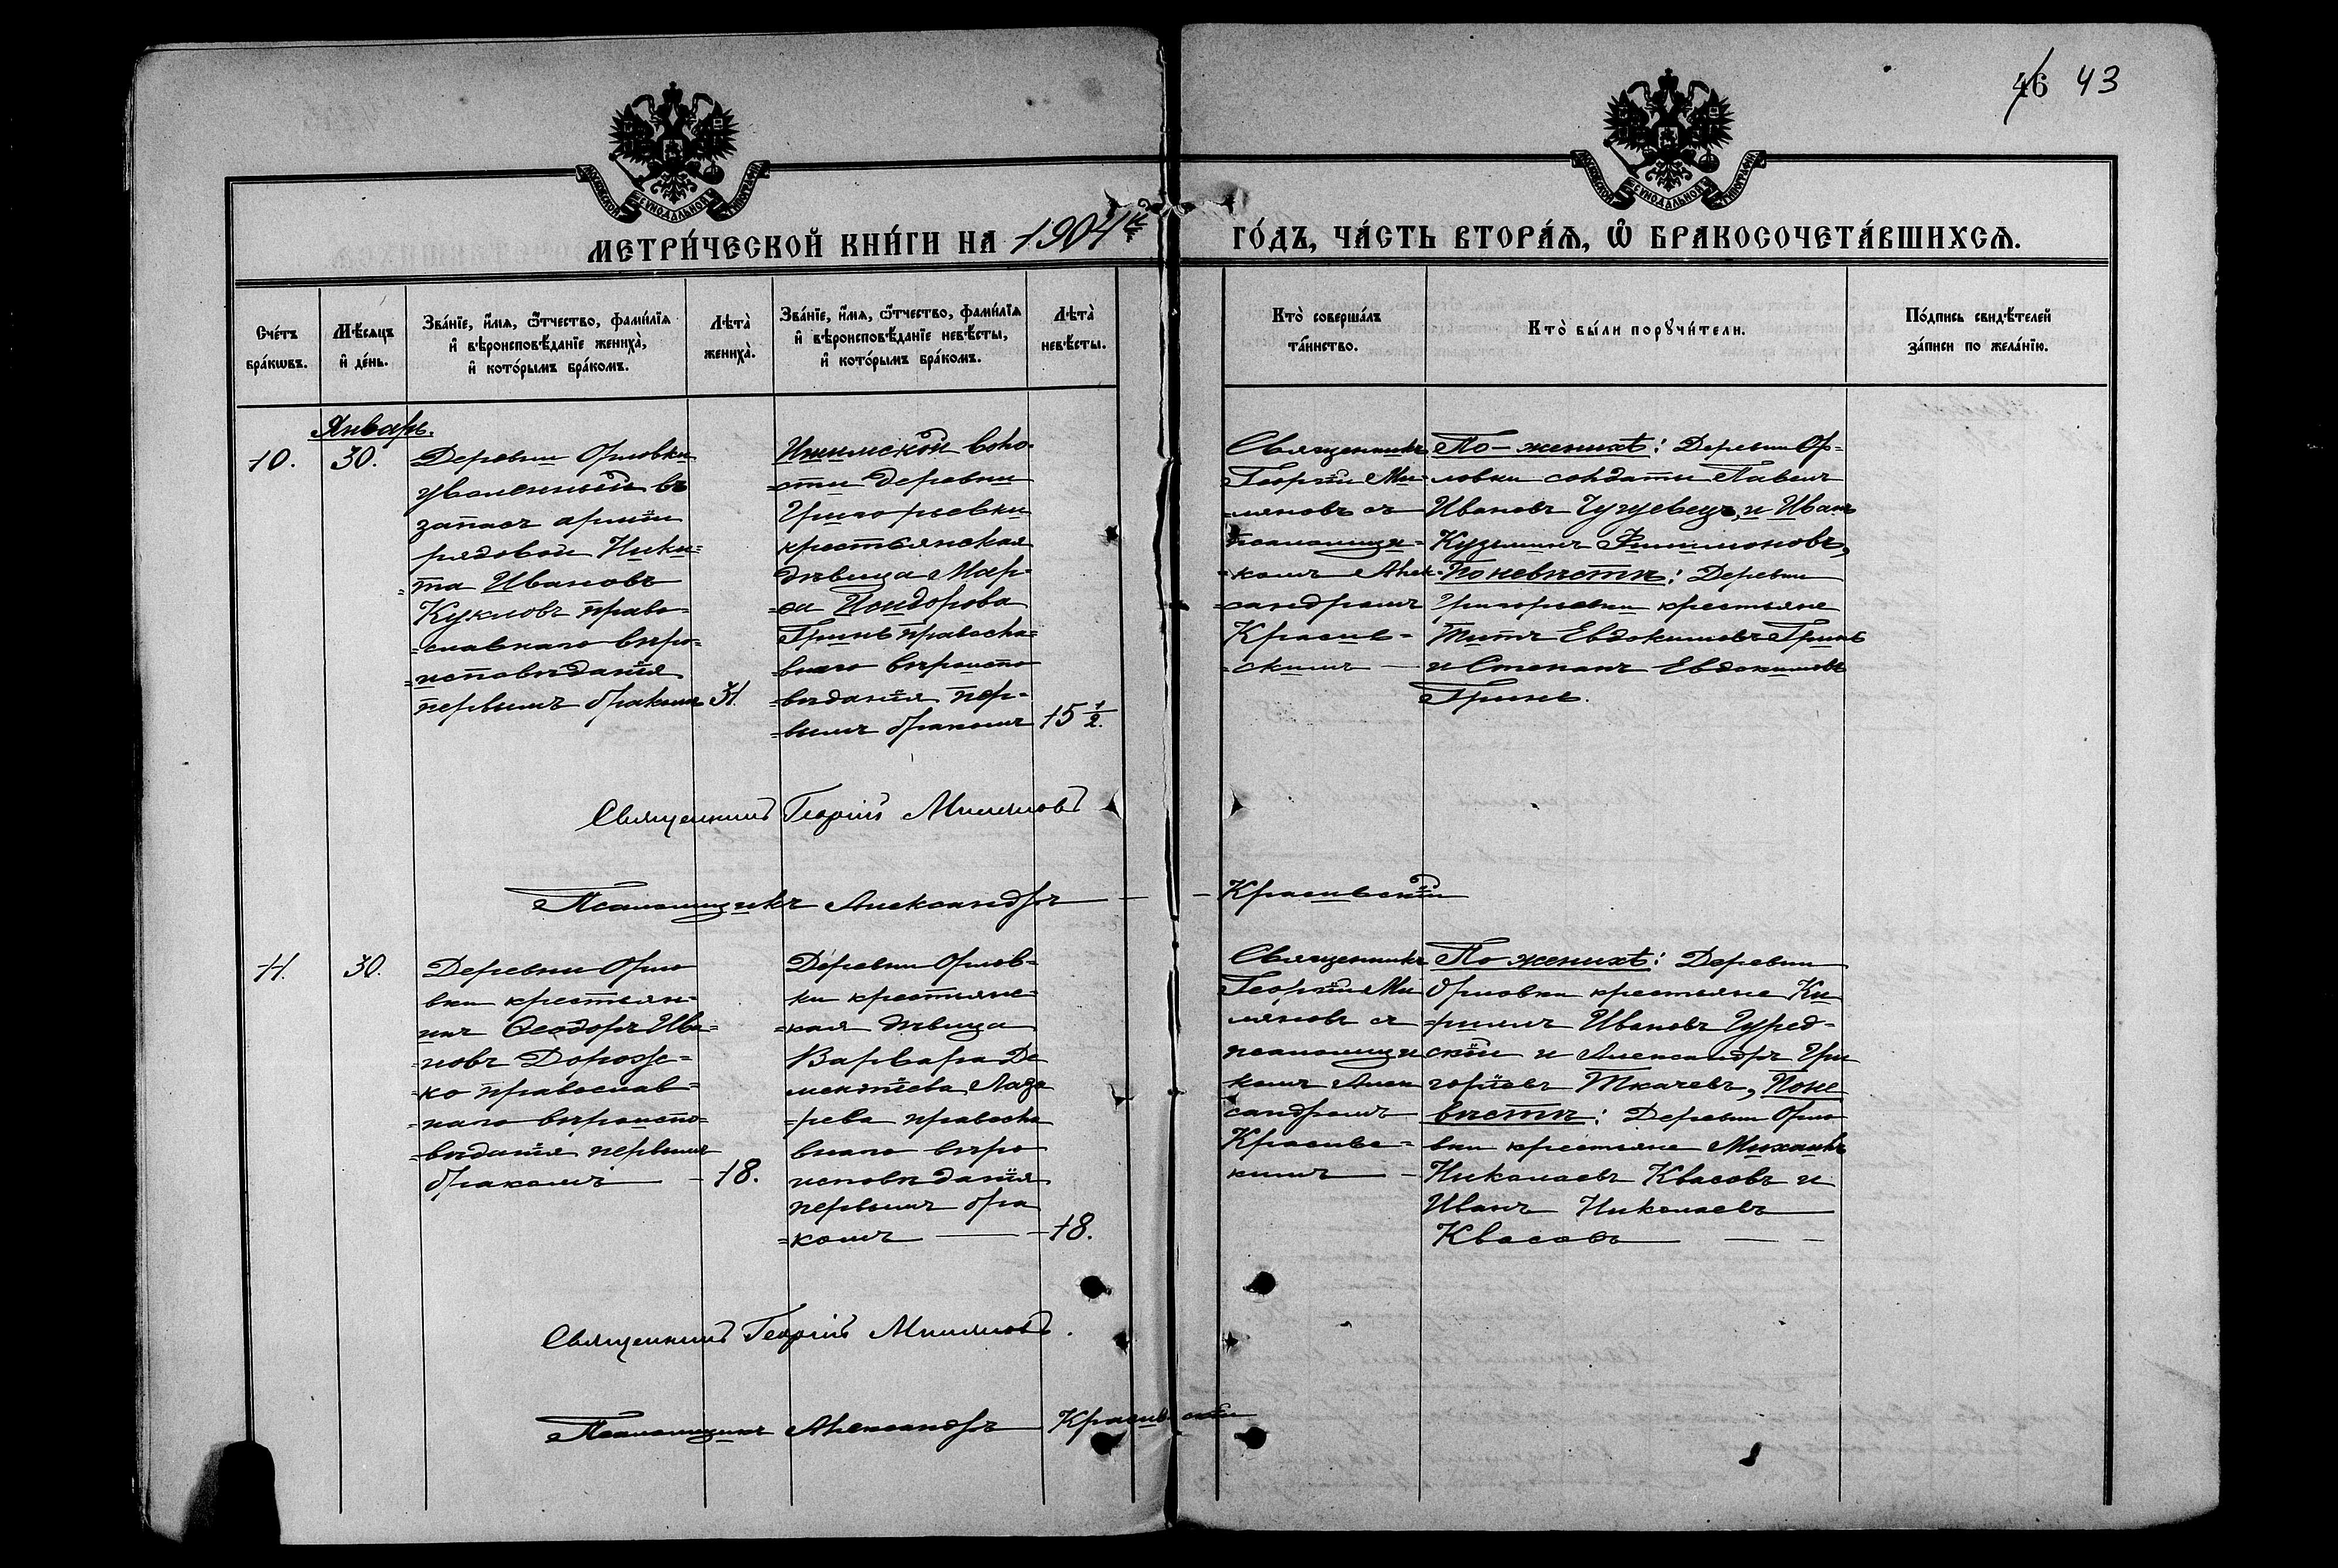 46 43
МОСКОВСКОЙ СѴНОДАЛЬНОЙ ТИПОГРАФІИ
МОСКОВСКОЙ СѴНОДАЛЬНОЙ ТИПОГРАФІИ
МЕТРИ́ЧЕСКОЙ КНИ́ГИ НА 1904й
ГО́ДЪ, ЧА́СТЬ ВТОРА́Ѧ, Ѽ БРАКОСОЧЕТА́ВШИХСѦ.
Сче́тъ
бра́кѡвъ.
Мѣ́сяцъ
и҆ де́нь.
Зва́нїе, и҆́мѧ, ѻ҆́тчество, фами́лїѧ
и҆ вѣроисповѣ́данїе жениха̀,
и҆ кото́рымъ бра́комъ.
Лѣ́та̀
жениха̀.
Зва́нїе, и҆́мѧ, ѻ҆́тчество, фами́лїѧ
и҆ вѣроисповѣ́данїе невѣ́сты,
и҆ кото́рымъ бра́комъ.
Лѣ́та̀
невѣ́сты.
Кто̀ соверша́лъ
та́инство.
Кто̀ бы́ли порꙋчи́тели.
По́дпись свидѣ́телей
за́писи по жела́нїю.
Январь.
10.
30.
Деревни Орловки
уволенный въ
запасъ арміи
рядовой Ники=
=та Ивановъ
Кукловъ право-
=славнаго вѣро=
=исповѣданія
первымъ бракомъ
31.
Ишимской воло-
=сти деревни
Григорьевки
крестьянская
дѣвица Мар-
=ѳа Исидорова
Гринь правосла=
=внаго вѣроиспо
=вѣданія пер-
=вымъ бракомъ
15 1/2.
Священникъ
Георгій Ми-
=ляновъ съ
псаломщи-
-комъ Алек-
=сандромъ
Красив-
=скимъ —
По-женихѣ: Деревни Ор-
ловки солдаты Павелъ
Ивановъ Чугуевецъ, и Иванъ
Кузьминъ Филимоновъ,
По невѣстѣ: Деревни
Григорьевки крестьяне
Титъ Евдокимовъ Гринь
и Степанъ Евдокимовъ
Гринь.
Священникъ Георгій Миляновъ
Псаломщикъ Александръ — — Красивскій
11.
30.
Деревни Орло
вки крестьян-
инъ Ѳеодоръ Ива=
=новъ Дорож=
=ко православ=
=наго вѣроиспо-
=вѣданія первымъ
бракомъ
- 18.
Деревни Орлов-
ки крестьянс-
=кая дѣвица
Варвара Де
ментіева Лаза
=рева правосла
внаго вѣро
исповѣданія
первымъ бра
=комъ —
-18.
Священникъ
Георгій Ми
ляновъ съ
псаломщи
комъ Алек
сандромъ
Красивс-
кимъ —
По женихѣ: Деревни
Орловки крестьяне Ки
=риллъ Ивановъ
скій и Александръ Гри
горіевъ Ткачевъ, По не
вѣстѣ: Деревни Орло
вки крестьяне Михаилъ
Николаевъ Квасовъ и
Иванъ Николаевъ
Квасовъ — — —
Священникъ Георгій Миляновъ.
Псаломщикъ Александръ Красивскій